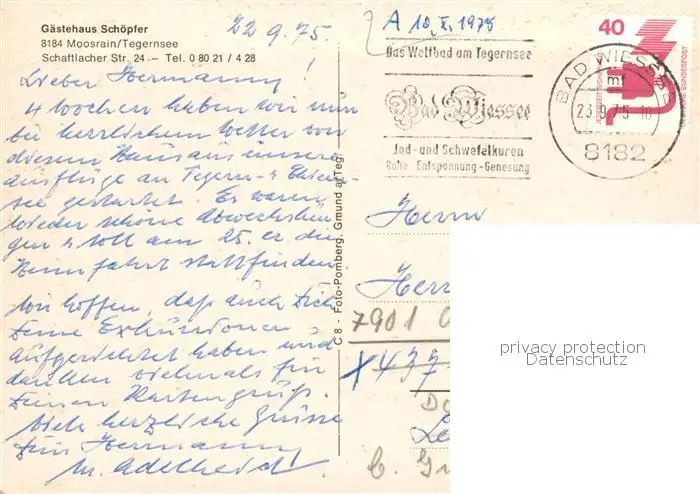 Gästehaus Schöpfer
8184 Moosrain/Tegernsee
Schaftlacher Str. 24 – Tel. 0 80 21 / 4 28
22.9.75.
A 10.X.1975
Lieber Hermann!
4 Wochen haben wir nun
bei herrlichem Wetter von
diesem Haus aus unsere
Ausflüge an Tegern- u. Chiem-
see gestartet. Es waren
wieder schöne Abwechslun-
gen u. soll am 25. er. die
Heimfahrt stattfinden
Wir hoffen, daß auch Dich
Deine Exkursionen
aufgerichtet haben und
danken vielmals für
Deinen Kartengruß.
Viele herzliche Grüsse
Dein Hermann
u. Adelheid!
C 8 - Foto-Pomberg, Gmund a/Teg.
Das Weltbad am Tegernsee
Bad Wiessee
Jod- und Schwefelkuren
Ruhe - Entspannung - Genesung
BAD WIESSEE
23.9.75.-18
8182
40
JEDERZEIT SICHERHEIT
DEUTSCHE BUNDESPOST
Herrn
7901
privacy protection
Datenschutz